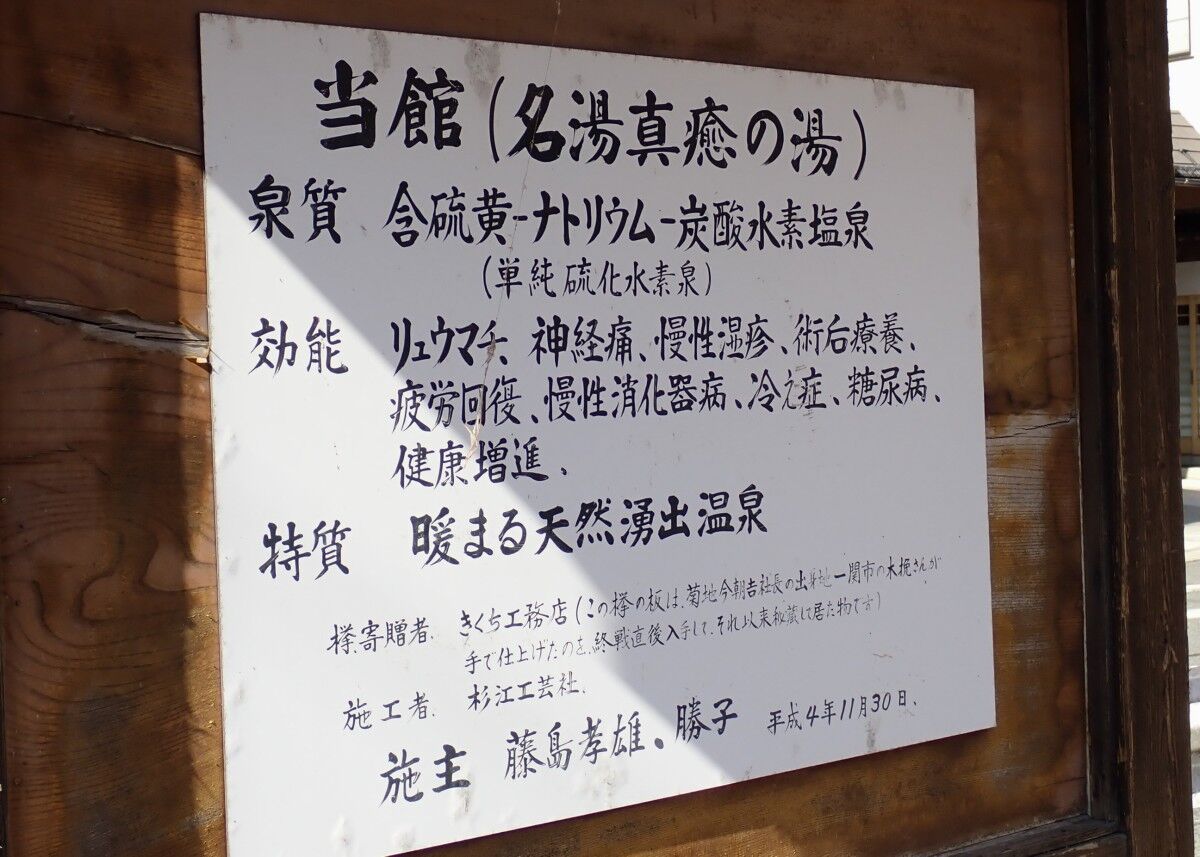 当館(名湯真癒の湯)
泉質 含硫黄-ナトリウム-炭酸水素塩泉
(単純硫化水素泉)
効能 リュウマチ、神経痛、慢性湿疹、術后療養、
疲労回復、慢性消化器病、冷え症、糖尿病、
健康増進、
特質 暖まる天然湧出温泉
欅、寄贈者、きくち工務店(この欅の板は、菊地今朝吉社長の出身地一関市の木挽さんが
手で仕上げたのを、終戦直後入手して、それ以来秘蔵して居た物です)
施工者、杉江工芸社、
施主 藤島孝雄、勝子 平成4年11月30日、